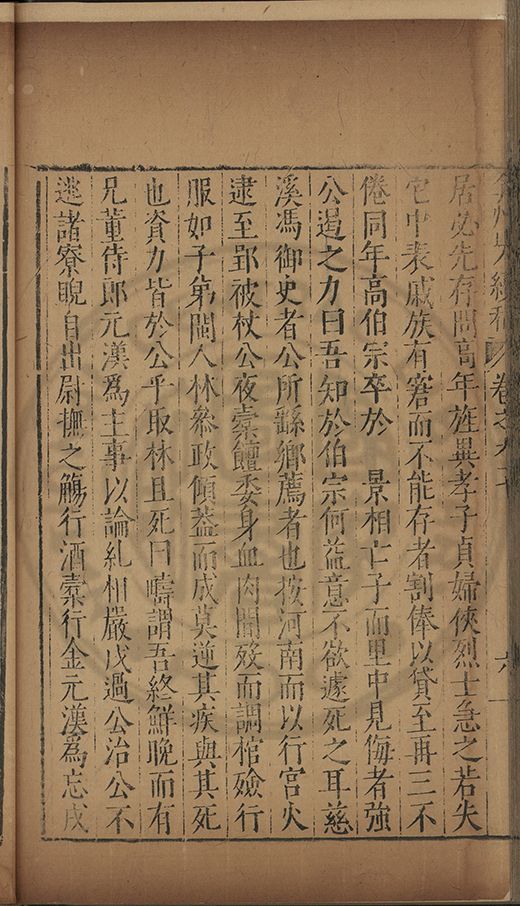 弇州史續稿 卷之九十 六
居必先存問高年旌異孝子貞婦俠烈士急之若失
它中表戚族有窘而不能存者割俸以貸至再三不
倦同年高伯宗卒於 景相亡子而里中見侮者強
公遏之力曰吾知於伯宗何益意不欲遽死之耳慈
溪馮御史者公所繇鄉薦者也按河南而以行宮火
逮至郢被杖公夜橐饘委身血肉間歿而調棺殮行
服如子弟閩人林叅政傾葢而成莫逆其疾與其死
也資力皆於公乎取林且死曰疇謂吾終鮮晚而有
兄董侍郎元漢爲主事以論糺相嚴戍過公治公不
遜諸寮睨自出尉撫之觴行酒橐行金元漢爲忘戍